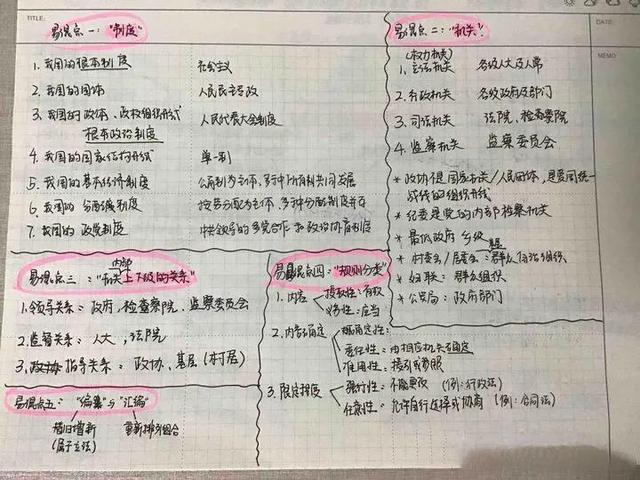 TITLE:
DATE:
MEMO
易混点一：“制度”
1. 我国的根本制度 社会主义
2. 我国的国体 人民民主专政
3. 我国的政体、政权组织形式 人民代表大会制度
根本政治制度
4. 我国的国家结构形式 单一制
5. 我国的基本经济制度 公有制为主体，多种所有制共同发展
6. 我国的 分配制度 按劳分配为主体，多种分配制度并存
7. 我国的 政党制度 共领导的多党合作和政治协商制度
易混点二：“机关”
(权力机关)
1. 立法机关 各级人大及人常
2. 行政机关 各级政府及部门
3. 司法机关 法院，检查察院
4. 监察机关 监察委员会
* 政协不是国家机关/人民团体，是爱国统一
战线的组织形式
* 纪委是党的内部检察机关
* 最低政府 乡级
* 村委会/居委会：群众自治组织
* 妇联：群众组织
* 公安局：政府部门
易混点三：“机关上下级的关系”
内部
1. 领导关系：政府，检查察院，监察委员会
2. 监督关系：人大，法院
3. 指导关系：政协，基层（村居）
易混点四：“规则分类”
1. 内容
授权性：有权
义务性：应当
2. 内容确定
确定性：
委任性：由相应机关确定
准用性：援引或参照
3. 限定程度
强行性：不能更改（例：行政法）
任意性：允许自行选择或协商（例：合同法）
易混点五：“编纂”与“汇编”
(属于立法)
重新排列组合